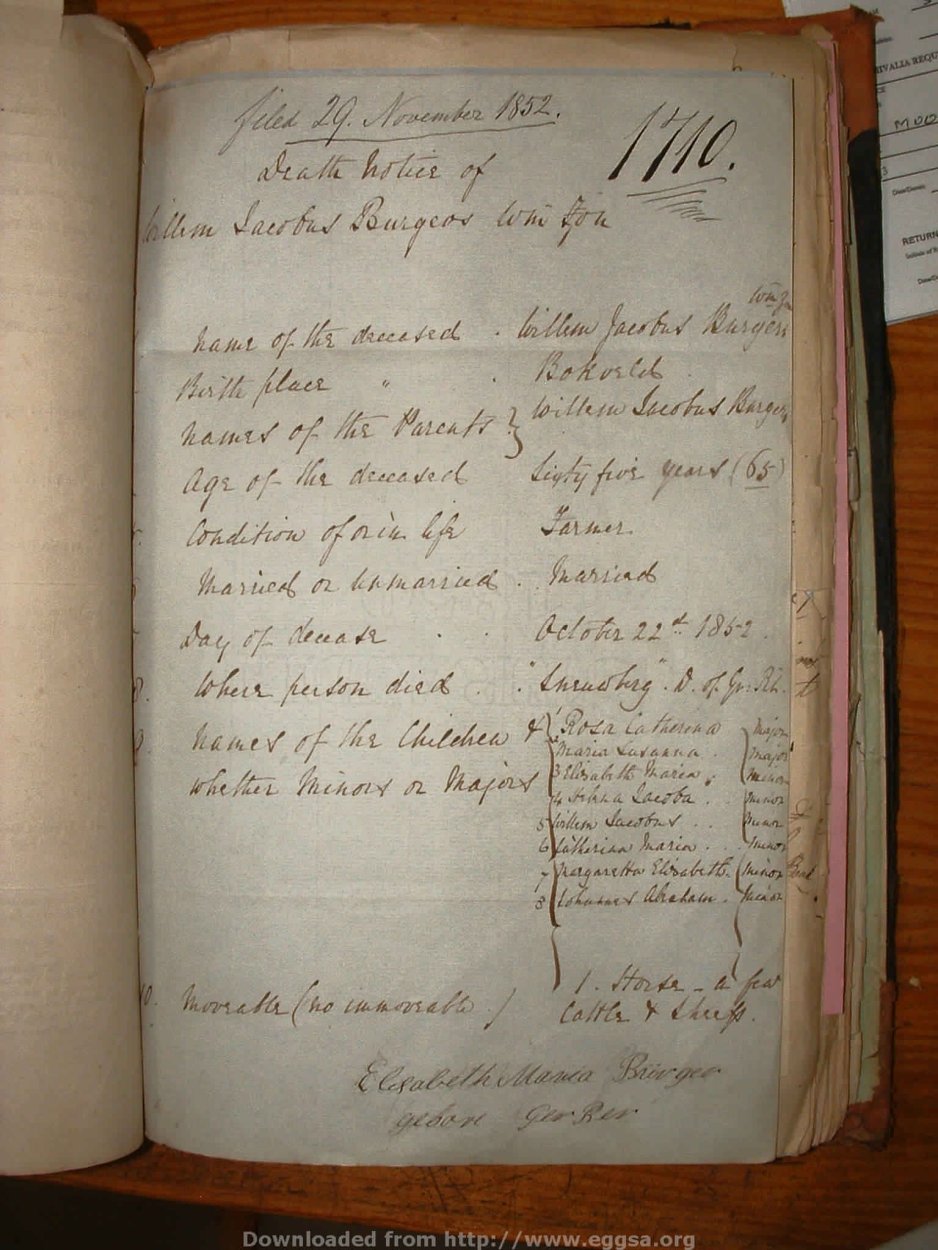 filed 29. November 1852.
1710.
Death Notice of
Willem Jacobus Burgers Wm Zon
Name of the deceased . Willem Jacobus Burgers Wm Zn
Birth place " . Bokveld
Names of the Parents } Willem Jacobus Burgers
Age of the deceased Sixty five years (65)
Condition of or in life Farmer
Married or Unmarried . Married
Day of decease . . October 22d 1852.
8. Where person died . . D. of Gr: Rt.
9. Names of the Children &
whether Minors or Majors
1 Rosa Catherina major
2 Maria Susanna . major
3 Elizabeth Maria . minor
4 Helena Jacoba . . minor
5 Willem Jacobus . . minor
6 Catherina Maria . . . minor
7 Margaretha Elizabeth . minor
8 Johannes Abraham . minor
10. Moveable (no immoveable.) 1. Horse - a few
Cattle & Sheep.
Elisabeth Maria Bürger
gebore
RIVALIA REQU
MOO
RETURN
Downloaded from http://www.eggsa.org